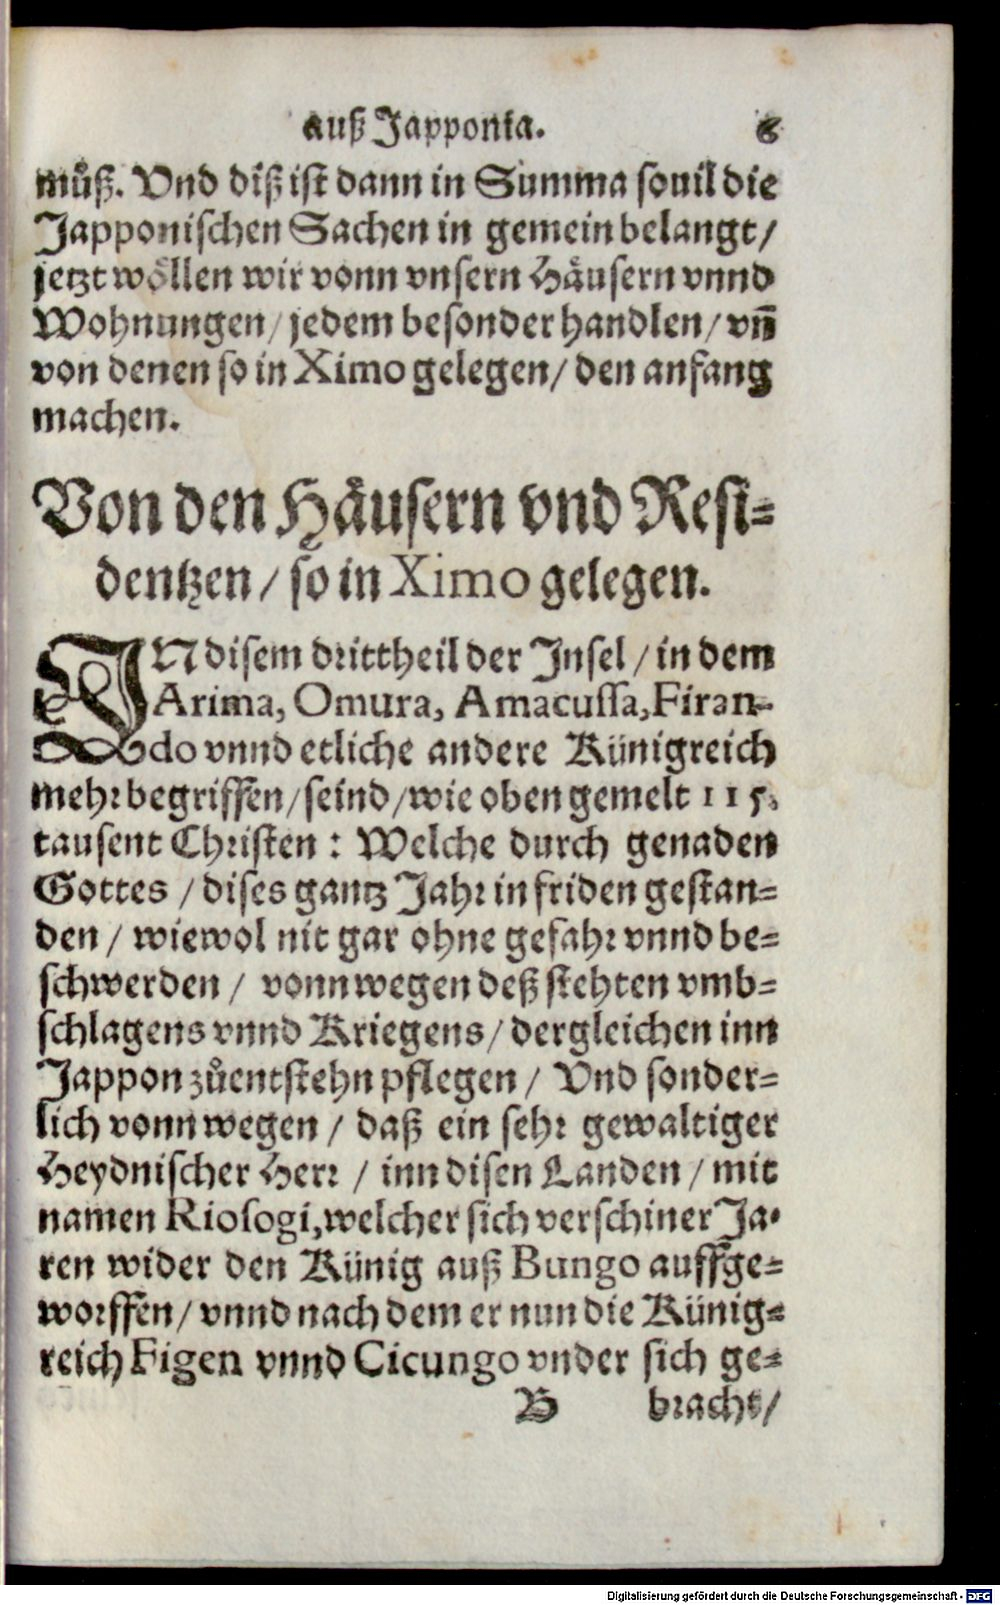 auß Japponia. 6
muͦß. Vnd diß ist dann in Summa souil die
Japponischen Sachen in gemein belangt/
jetzt woͤllen wir vonn vnsern Haͤusern vnnd
Wohnungen/ jedem besonder handlen/ vn̄
von denen so in Ximo gelegen/ den anfang
machen.
Von den Haͤusern vnd Resi-
dentzen/ so in Ximo gelegen.
IN disem drittheil der Insel/ in dem
Arima, Omura, Amacussa, Firan-
do vnnd etliche andere Künigreich
mehr begriffen/ seind/ wie oben gemelt 115.
tausent Christen: Welche durch genaden
Gottes/ dises gantz Jahr in friden gestan-
den/ wiewol nit gar ohne gefahr vnnd be-
schwerden/ vonn wegen deß stehten vmb-
schlagens vnnd Kriegens/ dergleichen inn
Jappon zuͦentstehn pflegen/ Vnd sonder-
lich vonn wegen/ daß ein sehr gewaltiger
Heydnischer Herr/ inn disen Landen/ mit
namen Riosogi, welcher sich verschiner Ja-
ren wider den Künig auß Bungo auffge-
worffen/ vnnd nach dem er nun die Künig-
reich Figen vnnd Cicungo vnder sich ge-
B bracht/
Digitalisierung gefördert durch die Deutsche Forschungsgemeinschaft - DFG